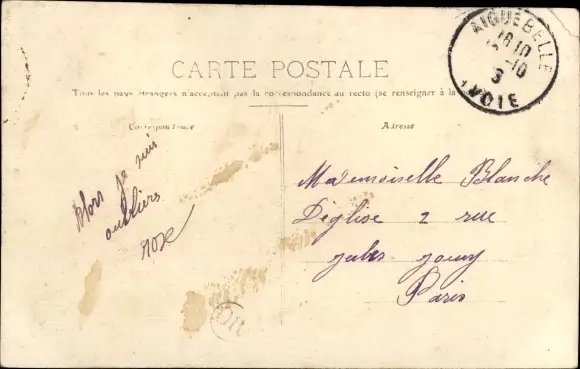 CARTE POSTALE
Tous les pays étrangers n'acceptent pas la correspondance au recto (se renseigner à la
Correspondance
Adresse
AIGUEBELLE
18 10
10
3
VOIE
Alors je suis
oubliers
Mademoiselle Blanche
Déglise 2 rue
jules jouy
Paris